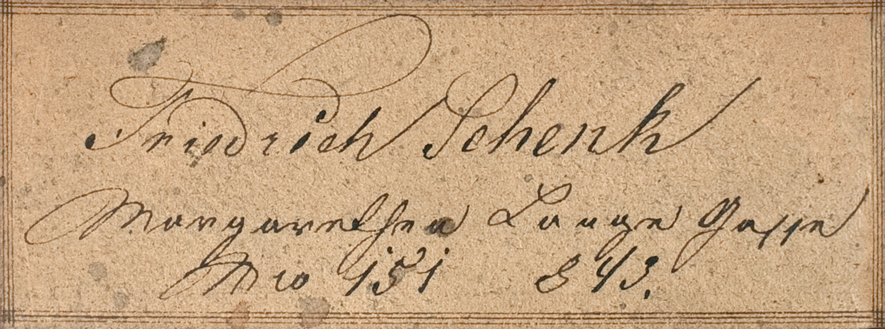 Friedrich Schenk
Margarethen Lange Gasse
Nro 151 843.